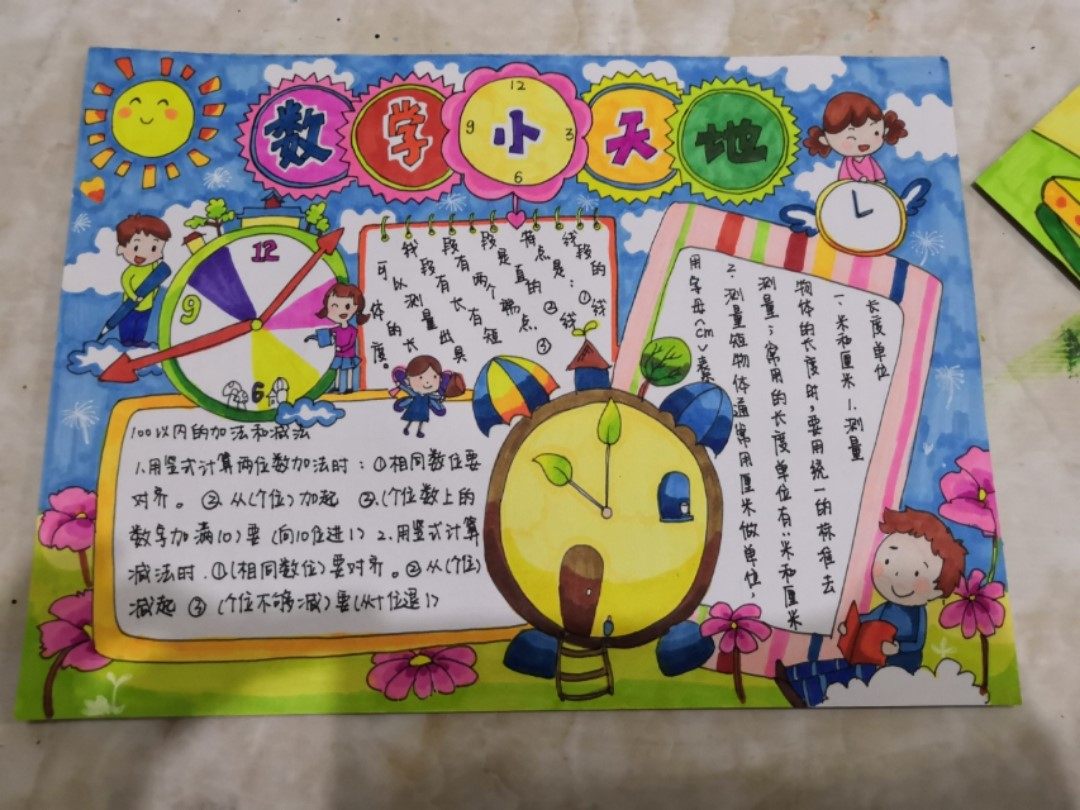 数学小天地
12
9 3
6
12
9
6
线段的
有点是：①线
段是直的②线
段有两个端点③
我段有长有短
可以测量出具
体的长度。
长度单位
一、米和厘米 1.测量
物体的长度时，要用统一的标准去
测量；常用的长度单位有：米和厘米
2.测量短物体通常用厘米做单位，
用字母(cm)
100以内的加法和减法
1.用竖式计算两位数加法时：①相同数位要
对齐。②从(个位)加起 ③.(个位数上的
数字加满10)要(向10位进1) 2.用竖式计算
减法时.①(相同数位)要对齐。②从(个位)
减起 ③(个位不够减)要(从十位退1)